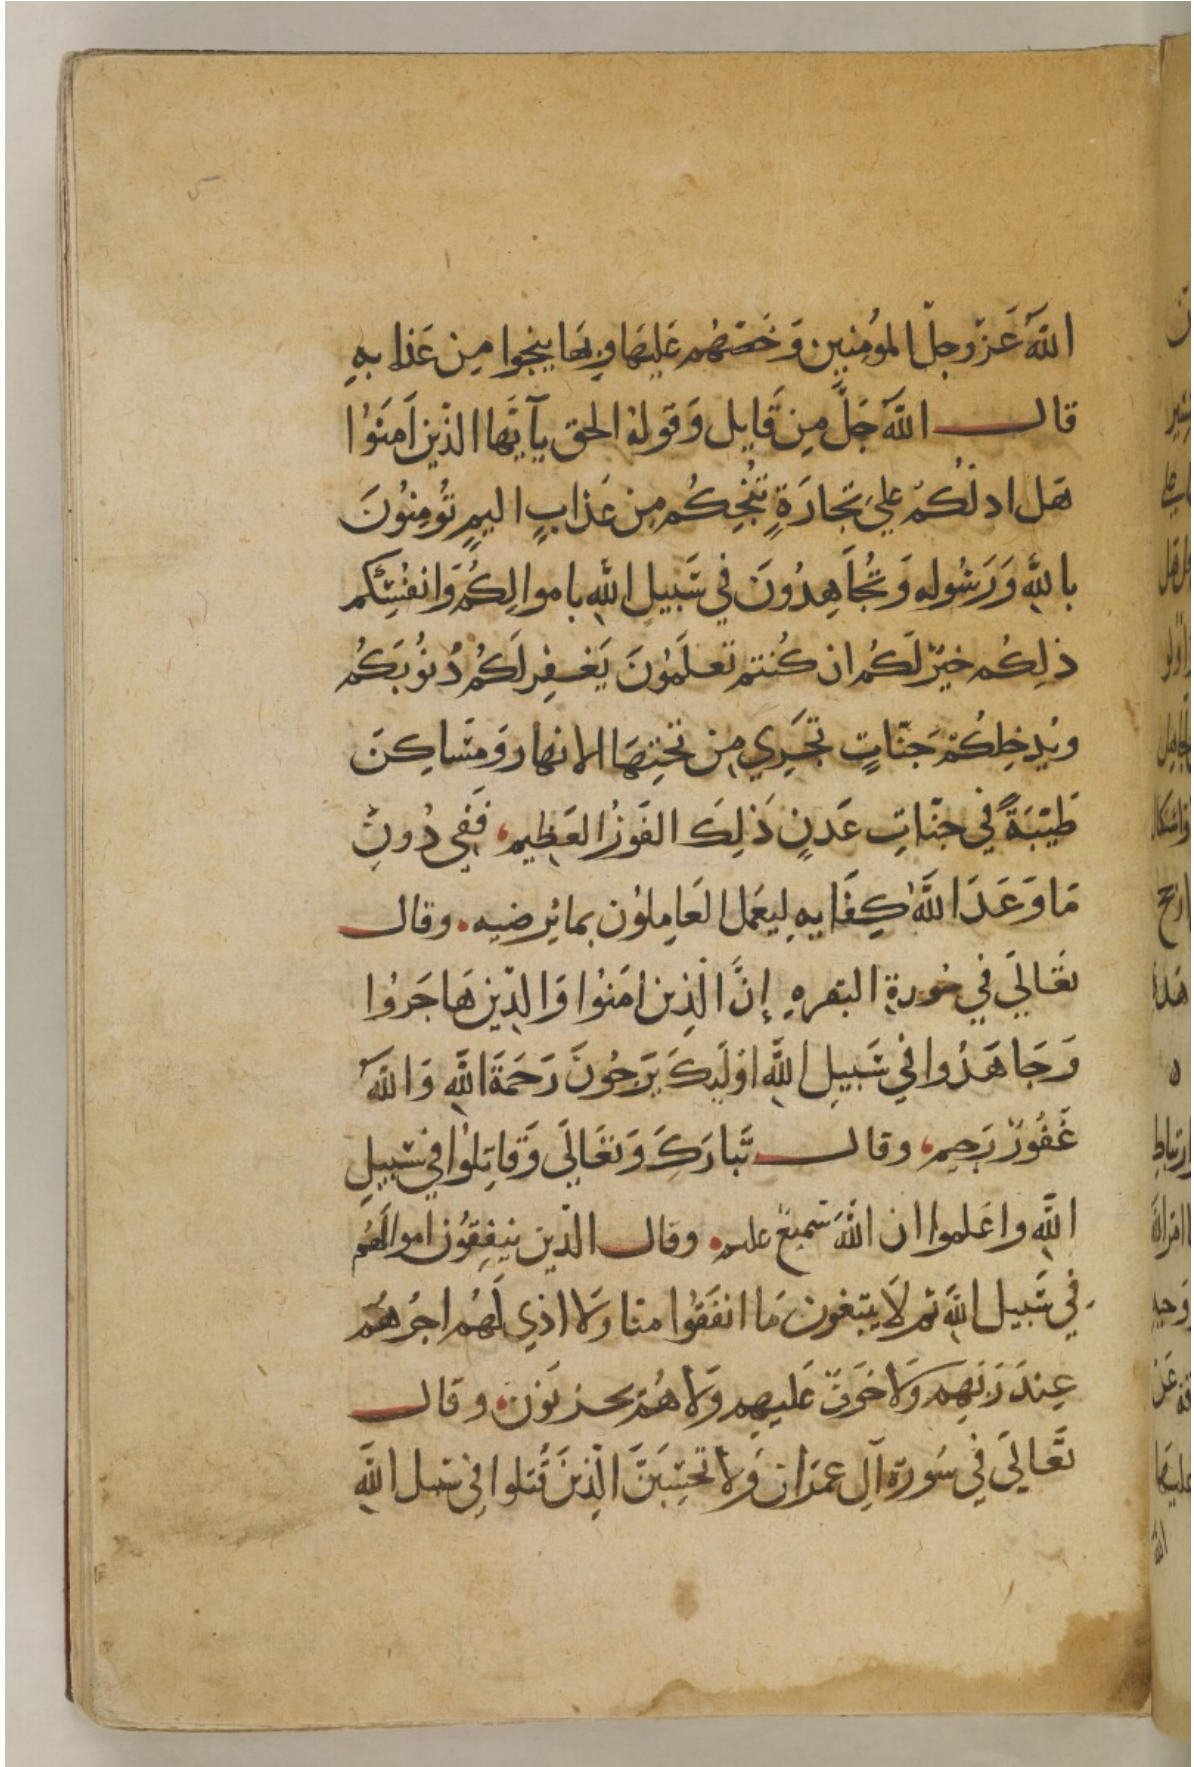 الله عَزّ وجلّ المومِنين وَخصّهُم عَليهَا وبها ينجوا مِن عَذابهِ
قال اللهُ جَلَّ مِن قَايل وَقوله الحق يآ اَيّها الذّين اَمنَوُا
هَل ادلّكُمْ علي تجارَةٍ تُنْجِكُم مِن عَذابٍ اليمٍ تُومِنوُنَ
باللهِ وَرَسُوله وَتُجاَهِدُونَ في سَبيلِ اللهِ باموالِكُم وَانفُسِكم
ذلِكُم خيرٌ لَكُم ان كُنتم تَعلَموُنَ يَغفِر لَكُم ذُنوُبَكُم
ويُدخِلكُمْ جَنّاتٍ تجَرِي مِن تحتِهَا الانهار وَمَسَاكِنَ
طَيّبَةً في جنّاتِ عَدنٍ ذَلِكَ الفَوزُ العَظِيم فَفي دُونِ
مَا وَعَدَ اللَّهُ كِفَايهِ لِيعَمل العَامِلوُن بما يُرضيه وقال
تعَاليَ في سُورة البقره إنَّ الّذِين اَمَنوُا وَالذّين هَاجَروُا
وَجَاهَدُوا في سَبيلِ اللهِ اوليكَ يَرجُونَ رَحمَةَ اللهِ وَاللهُ
غَفُورٌ رَحِيم وقال تَبارَكَ وَتعَاليَ وَقاتِلوُا في سَبيلِ
اللهِ واعَلموا ان اللهَ سَميعٌ عليم وقال الذّين ينفِقُون اموالَهُم
في سَبيل اللهِ ثم لاَ يتبعون مَا انفَقوُا منا وَلا اذي لَهُم اجرُهُم
عِندَ رَبّهِم وَلا خَوفٌ عَليهِم وَلا هُم يحزَنَون وقال
تَعَاليَ في سَورة آلِ عمَران وَلا تحسِبَنَّ الّذِينَ قُتلوا في سبيل اللهِ